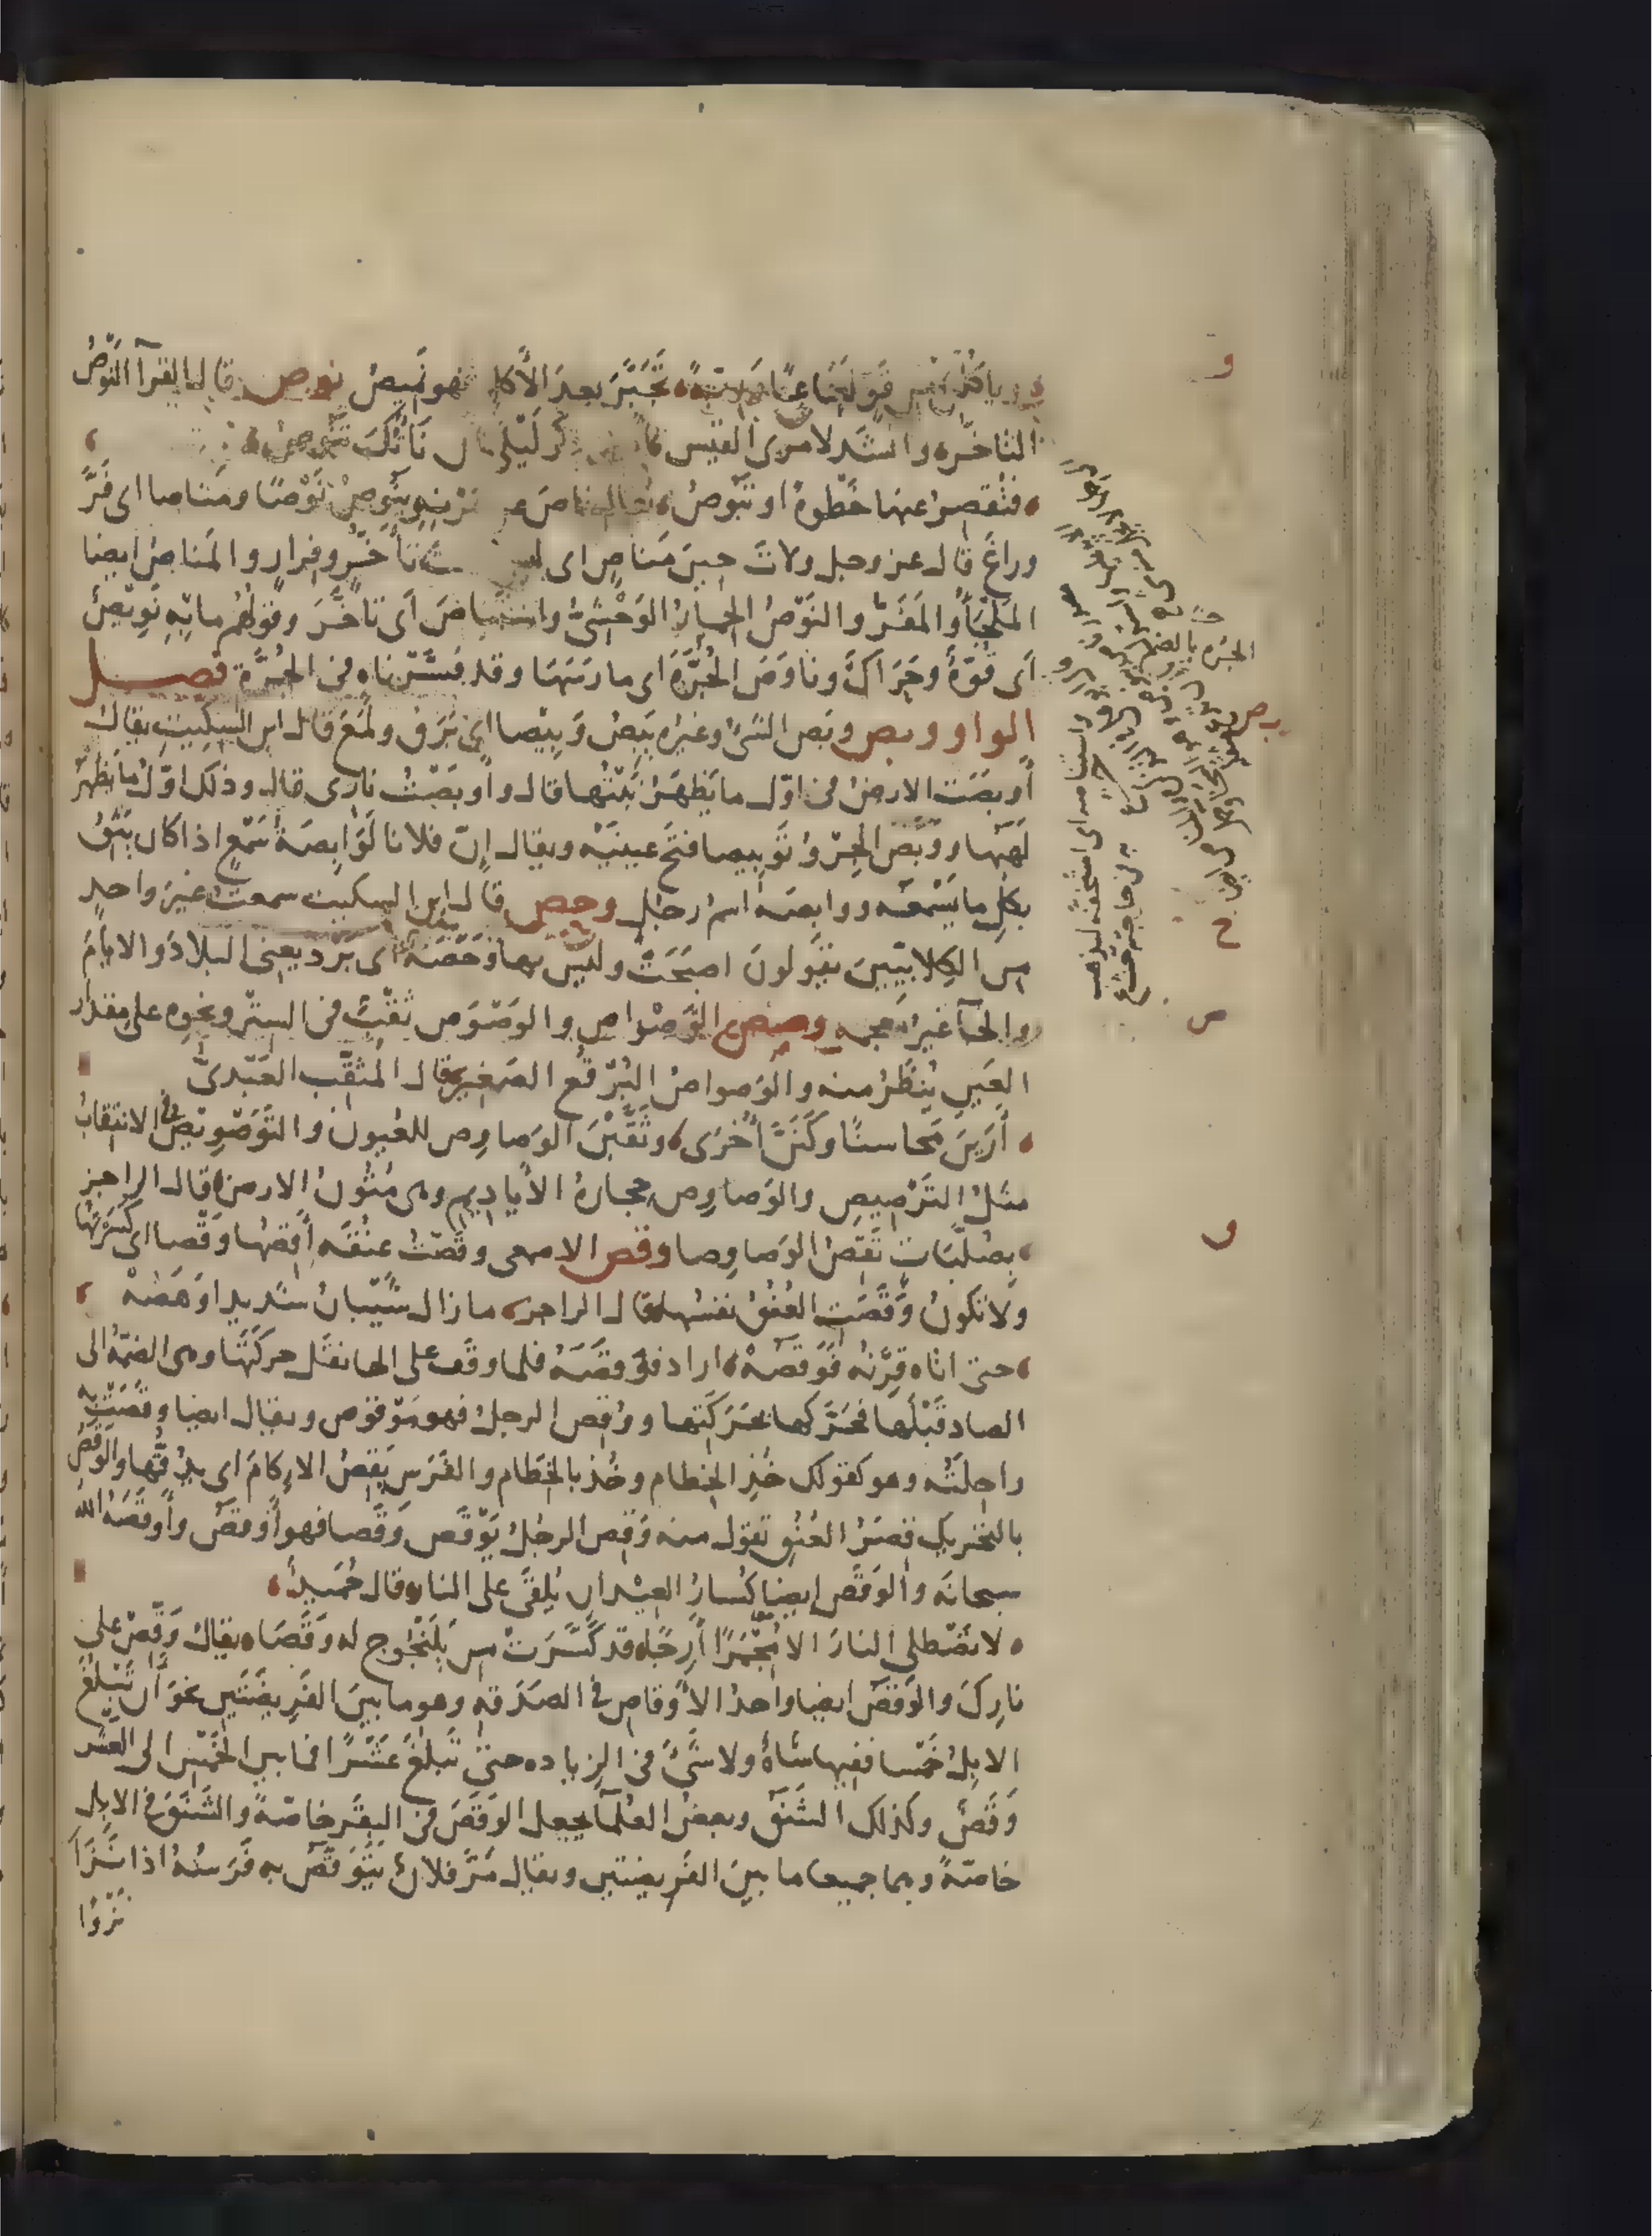 وياكلن من قو لعاعا وربة تجبر بعد الأكل فهو نميص نوص قال الفرآ النَّوْصُ
التاخّره وانشد لامرى القيس ذكر ليلى نأتك تنوص
فتقصر عنها خَطْوةً او تَبُوصُ يقال ناص عن قرنه ينوص نَوْصًا ومناصا اى فَرَّ
وراغَ قال عز وجل ولاتَ حِينَ مَناصٍ اى ليس تأخّر وفرار والمَناص ايضا
المَلجَأ والمَفَرّ والنَوْصُ الحمار الوَحْشىّ واستناصَ اى تأخَّرَ وقولهم ما به نَوِيصٌ
اى قُوّةٌ وحَراكٌ وناوَصَ الجُرَّةَ اى مارَسَها وقد فسّرناه فى الجُرَّة فصل
الواو وبص وبَص الشىُ وغيره يَبِصُ وَبِيصا اى بَرَق ولَمَع قال ابن السِكِّيتِ يقال
أوبصَت الارضُ فى اوّل ما يَظهَرُ نَبْتُها قال وأوبَصَتْ نارى قال وذلك اوّلُ ما يَظهَرُ
لَهَبُها ووَبَّصَ الجِرْوُ تَوبِيصا فتَح عينَيْه ويقال إنّ فلانا لَوَابِصَةُ سَمْعٍ اذا كان يَثِقُ
بكلّ ما يَسْمَعُه ووابصة اسمُ رجُلٍ وحص قال ابن السكيت سمعت غيرَ واحدٍ
من الكِلابيّين يقولونَ اصبَحَتْ وليس بها وَحْصَةٌ اى بَرد يعنى البلادَ والايامَ
والحآ غيرُ معجمه وصص الوَصْواص والوَصْوَص ثَقْبٌ فى السِتْر ونحوه على مقدار
العَينِ يُنظَرُ منه والوَصواصُ البُرْقُع الصَغِير قال المثقّب العَبْدىّ
أَرَينَ مَحاسنًا وكَنَنَّ أُخرَى وثَقَّبْنَ الوَصاوِص للعُيون والتَوَصْوِيصُ فى الانتقاب
مثلُ التَرْصِيصِ والوَصاوِص حجارةُ الأَياديم وهى مُتُونُ الارض قال الراجز
بصُلَّباتٍ تَقِصُ الوَصاوِصا وقص الاصمعى وقَصْتُ عنُقَه أَقِصُها وَقْصا اى كَسَرْتُها
ولا تكونُ وَقَصَتِ العُنُقُ نفسُها قال الراجز ما زال شَيْبانُ شديدا وَهَصُهْ
حتى اتاه قِرْنُه فَوَقَصُهْ اراد فوَقَصَهُ فلما وقَف على الها نقَل حركَتَها وهى الضمّة الى
الصاد قَبْلَها فحَرَّكها بحَرَكَتِها ووُقِص الرجلُ فهو مَوْقوص ويقال ايضا وقَصَتْ به
راحِلَتُه وهو كقولك خُذِ الخِطام وخُذ بالخِطام والفَرَس يَقِصُ الإكامَ اى يدُقُّها والوَقَصُ
بالتحريك قِصَرُ العُنُقِ تقول منه وَقِصَ الرجُلُ يَوْقَص وَقَصا فهو أَوقَصُ وأَوقَصَهُ اللهُ
سبحانه والوَقَص ايضا كُسارُ العِيدان يُلقَى على النار وقال حُمَيدٌ
لا تَصْطلِى النارَ الا مُجْمَرًا أَرِجًا قد كَسَّرَتْ من يَلَنْجُوجٍ له وَقَصا يقال وَقِّصْ على
نارِكَ والوَقَصُ ايضا واحدُ الأَوقاصِ فى الصَدَقه وهو ما بينَ الفَرِيضَتَين نحوَ أن تَبلُغَ
الابِلُ خَمْسا ففيها شاةٌ ولا شَىْءَ فى الزِياده حتى تَبلُغَ عَشْرًا فما بين الخَمْسِ الى العشر
وَقَصٌ وكذلك الشَنَقُ وبعضُ العُلمآ يجعل الوَقَصَ فى البقَر خاصّةً والشَنَقَ فى الابِل
خاصّةً وهما جميعا ما بينَ الفَرِيضتين ويقال مَرَّ فلانٌ يَتَوَقَّصُ به فَرَسُهُ اذا نَزَا
نَزْوًا
و
الجُرّه بالضم
ح
ص
و